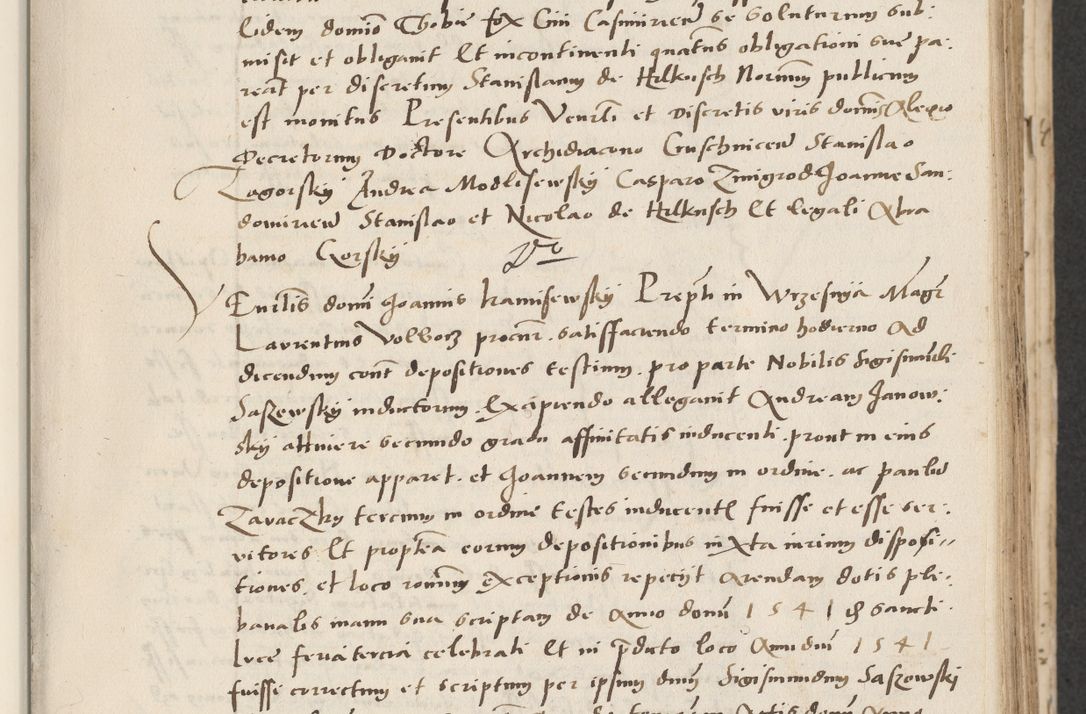 eidem domino Thobie fox Civi Casimirien se voluntarium sub:
misit et obligavit Et incontinenti quatenus obligationi sue pa:
reat per discretum Stanislaum de Helkusch Notarium publicum
est monitus Presentibus Venerli et Discretis viris dominis Alexio
Decretorum Doctore Archidiacono Cruschvicen Stanislao
Zagorskij Andrea Modlisewskij Casparo Zmigrod Joanne San:
domirien Stanislao et Nicolao de Helkusch Et legali Abra
hamo Gorskij
Enrlis domini Joannis kamisewskij Prepti in Wrzesnija Magr
Laurentius Vollocz procur. satisffaciendo termino hodierno Ad
dicendum cont depositiones testium pro parte Nobilis Sigismundi
Saszewskij inductorum Excipiendo allegavit Andream Janow:
skij attinere secundo gradu affinitatis inducenti prout in eius
depositione apparet. et Joannem secundum in ordine. ac paulum
Zavaczky tercium in ordine testes inducentis fuisse et esse ser:
vitores Et propterea eorum depositionibus iuxta iurium disposi:
tiones. et loco comunis exceptionis repetijt Arendam dotis ple:
banalis manu sua scriptam de Anno domini 1541 die sancti
luce feria tercia celebrati Et in predicto loco Anni dni 1541
fuisse correctum et scriptum per ipsum dnum Sigismundum Saszowski